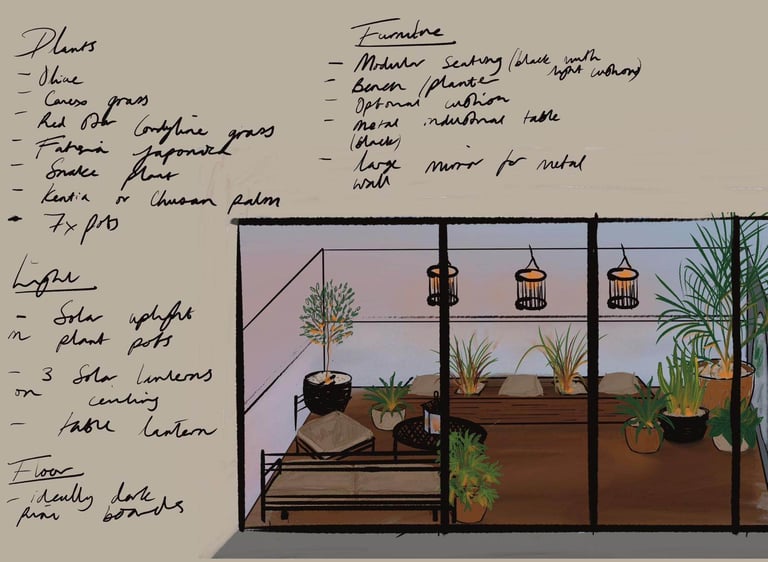 Plants
- Olive
- Carex grass
- Red Star Cordyline grass
- Fatsia Japonica
- Snake plant
- Kentia or Chusan palm
- 7x pots
Light
- Solar uplight
in plant pots
- 3 Solar lanterns
on ceiling
- table lantern
Floor
- ideally dark
boards
Furniture
- Modular Seating (black with
light cushions)
- Bench/planter
- Optional cushion
- Metal industrial table
(black)
- large mirror for metal
wall